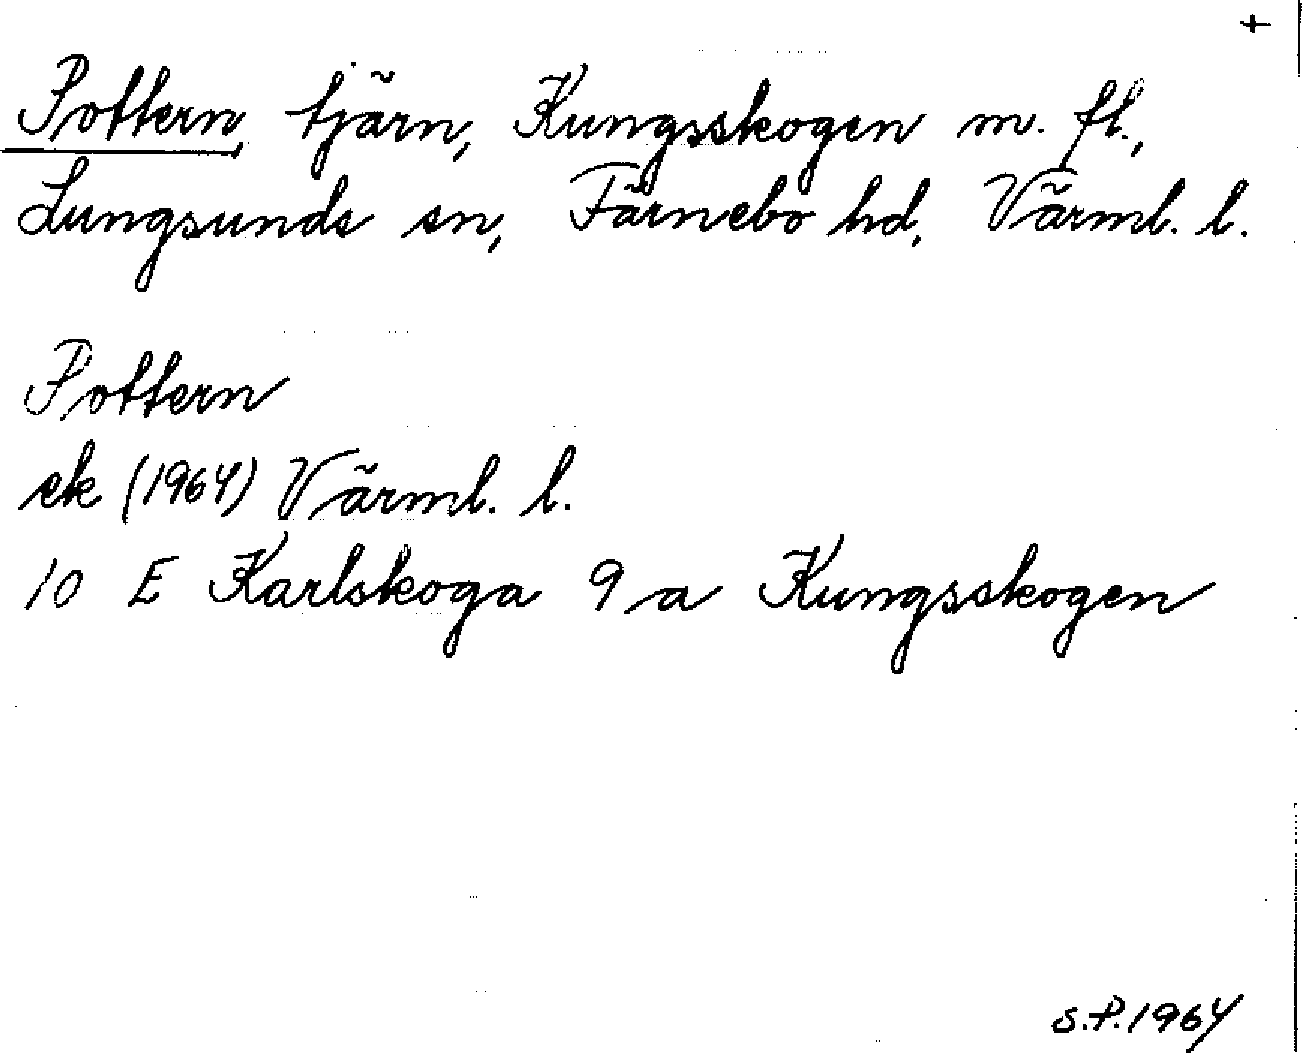 +
Pottern, tjärn, Kungsskogen m. fl.,
Lungsunds sn, Färnebo hd, Värml. l.
Pottern
ek (1964) Värml. l.
10 E Karlskoga 9 a Kungsskogen
S.P. 1964